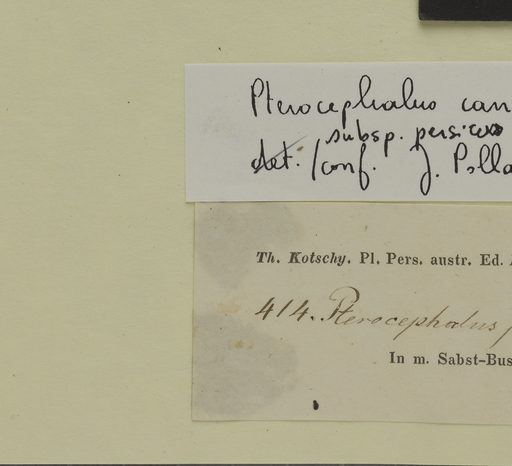 Pterocephalus can
subsp. persicus
det. / conf. J. Polla
Th. Kotschy. Pl. Pers. austr. Ed.
414. Pterocephalus
In m. Sabst-Bus